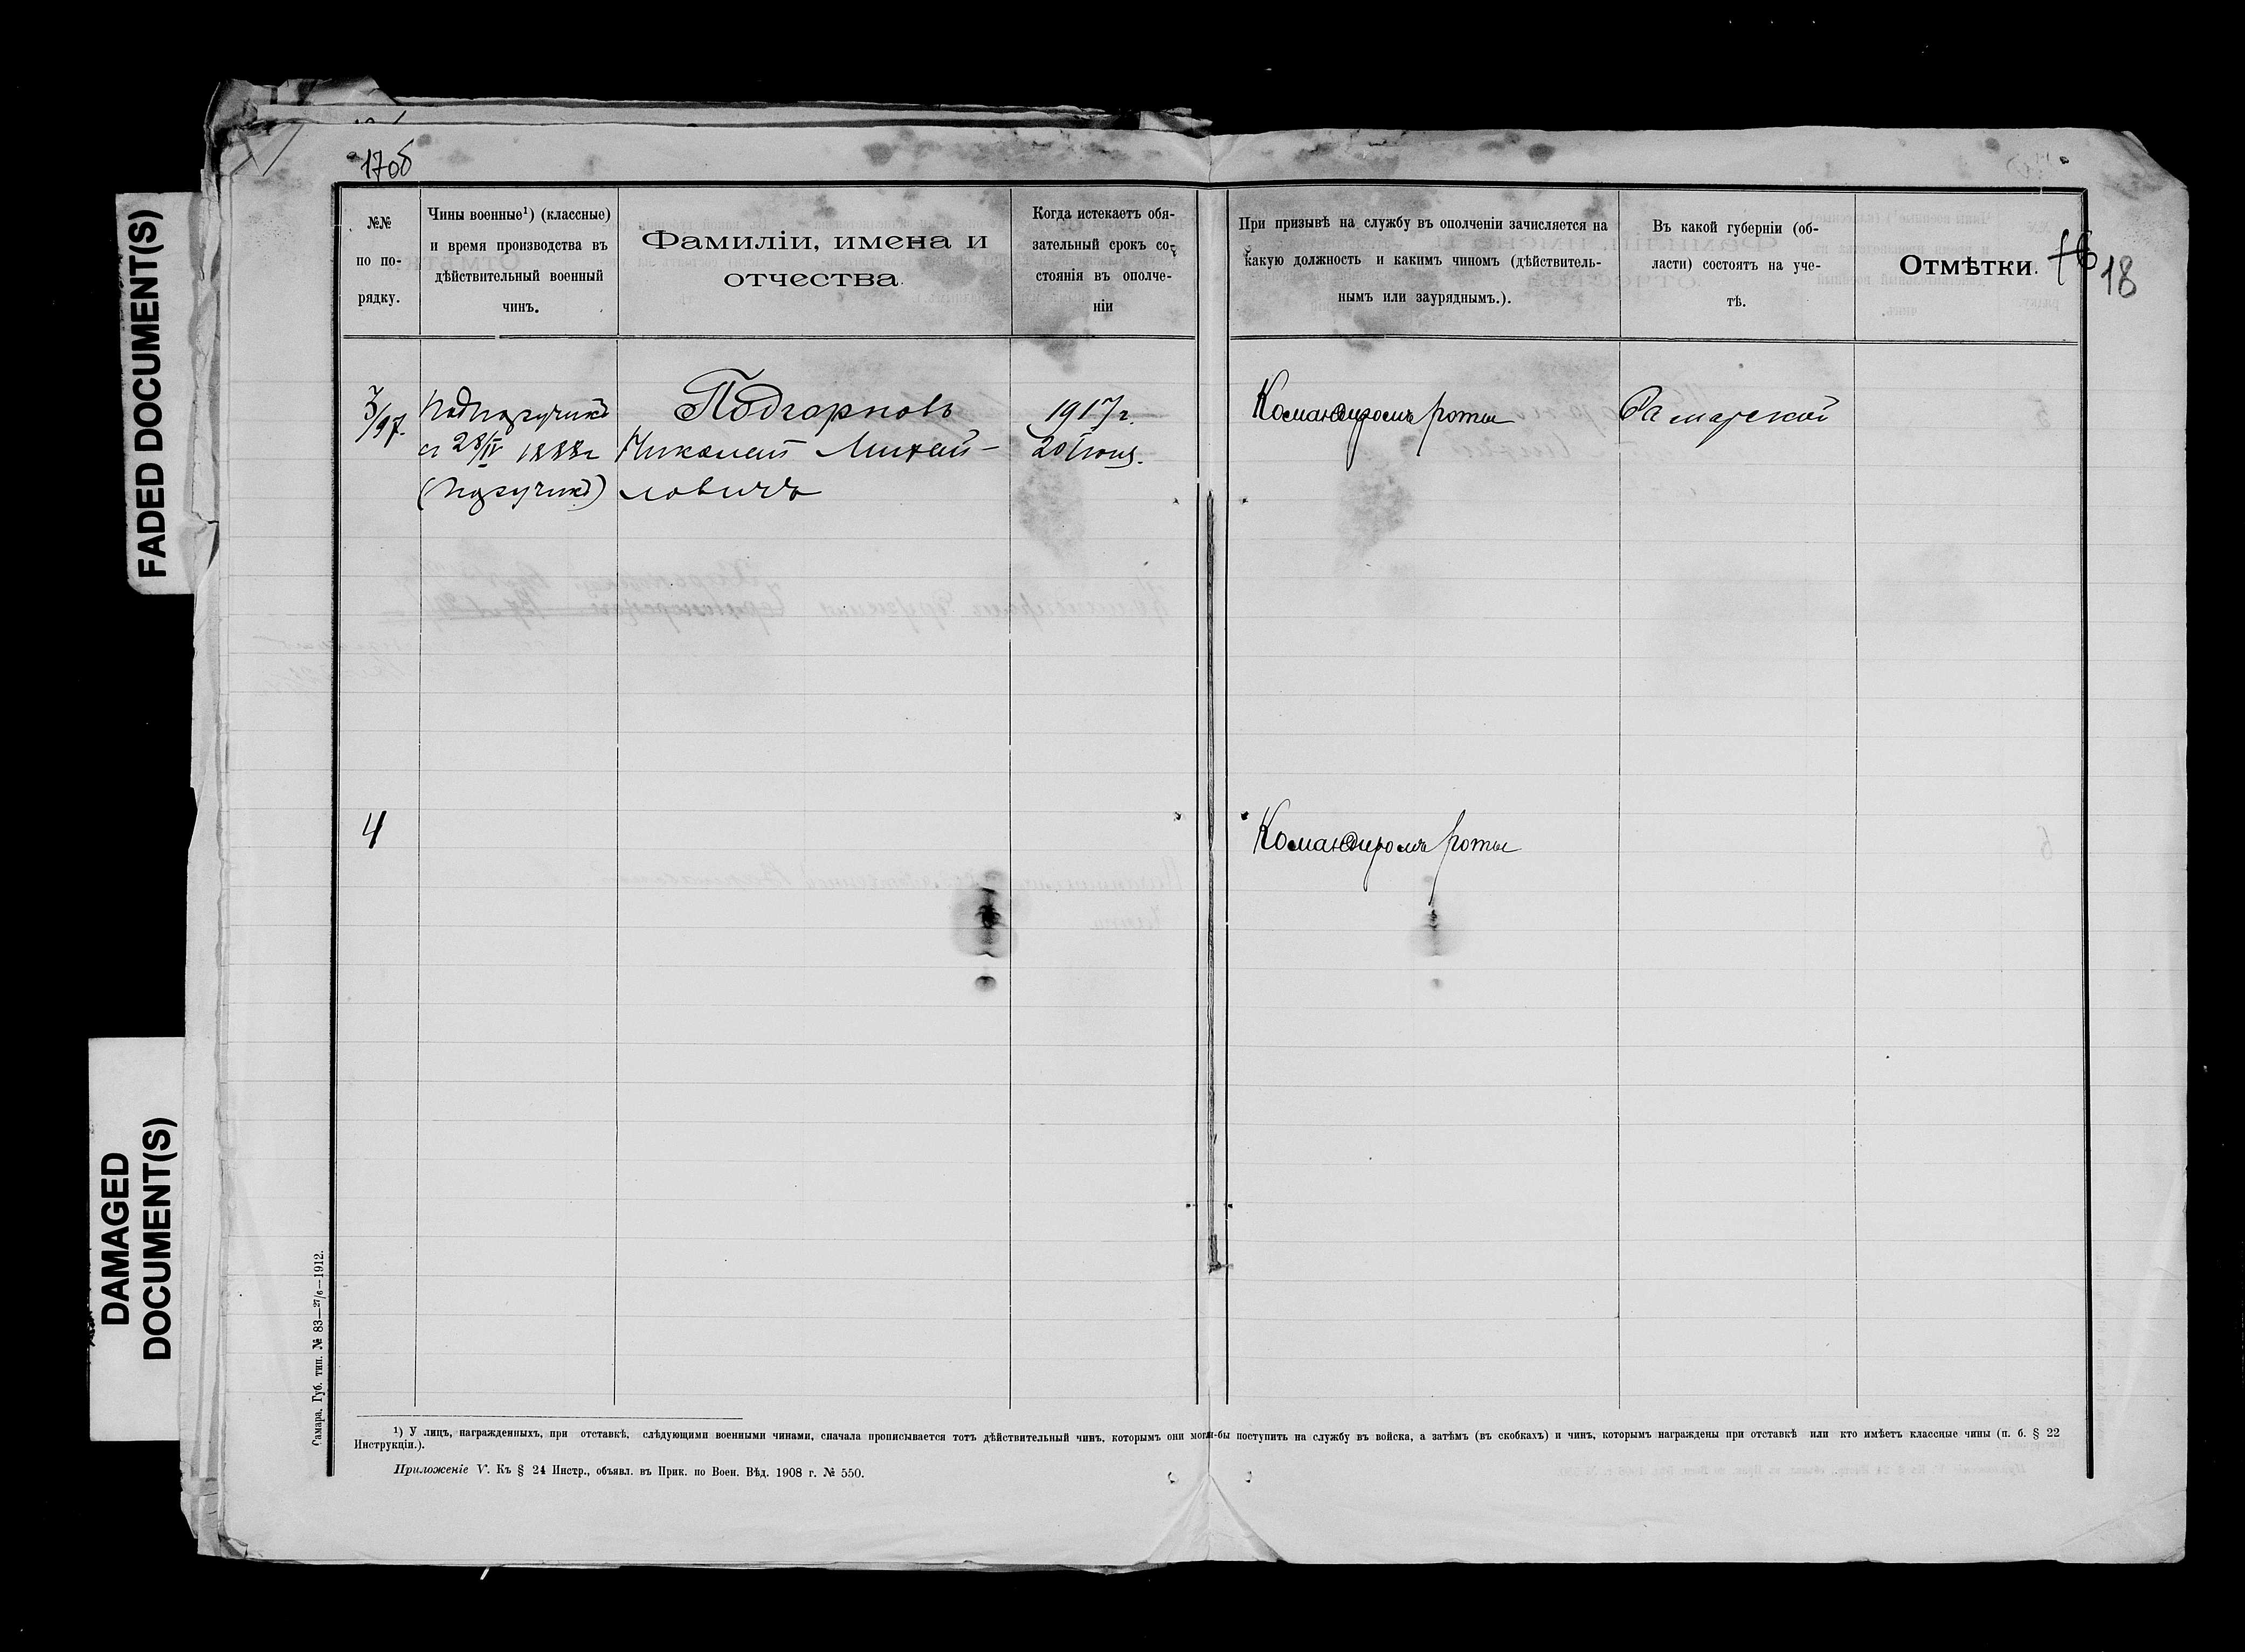 FADED DOCUMENT(S)
DAMAGED
DOCUMENT(S)
17об
№№
по по-
рядку.
Чины военные¹) (классные)
и время производства въ
дѣйствительный военный
чинъ.
Фамиліи, имена и
отчества.
Когда истекаетъ обя-
зательный срокъ со-
стоянія въ ополче-
ніи
При призывѣ на службу въ ополченіи зачисляется на
какую должность и какимъ чиномъ (дѣйствитель-
нымъ или зауряднымъ.).
Въ какой губерніи (об-
ласти) состоятъ на уче-
тѣ.
Отмѣтки.
18
3/97.
Подпоручикъ
съ 28/IV 1888г
(Поручикъ)
Подгорновъ
Николай Михай-
ловичъ
1917г.
20 Іюня.
Командиромъ роты
Самарской
4
Командиромъ роты
Самара. Губ. тип. № 83—27/6—1912.
¹) У лицъ, награжденныхъ, при отставкѣ, слѣдующими военными чинами, сначала прописывается тотъ дѣйствительный чинъ, которымъ они могли-бы поступить на службу въ войска, а затѣмъ (въ скобкахъ) и чинъ, которымъ награждены при отставкѣ или кто имѣетъ классные чины (п. б. § 22
Инструкціи.).
Приложеніе V. Къ § 24 Инстр., объявл. въ Прик. по Воен. Вѣд. 1908 г. № 550.